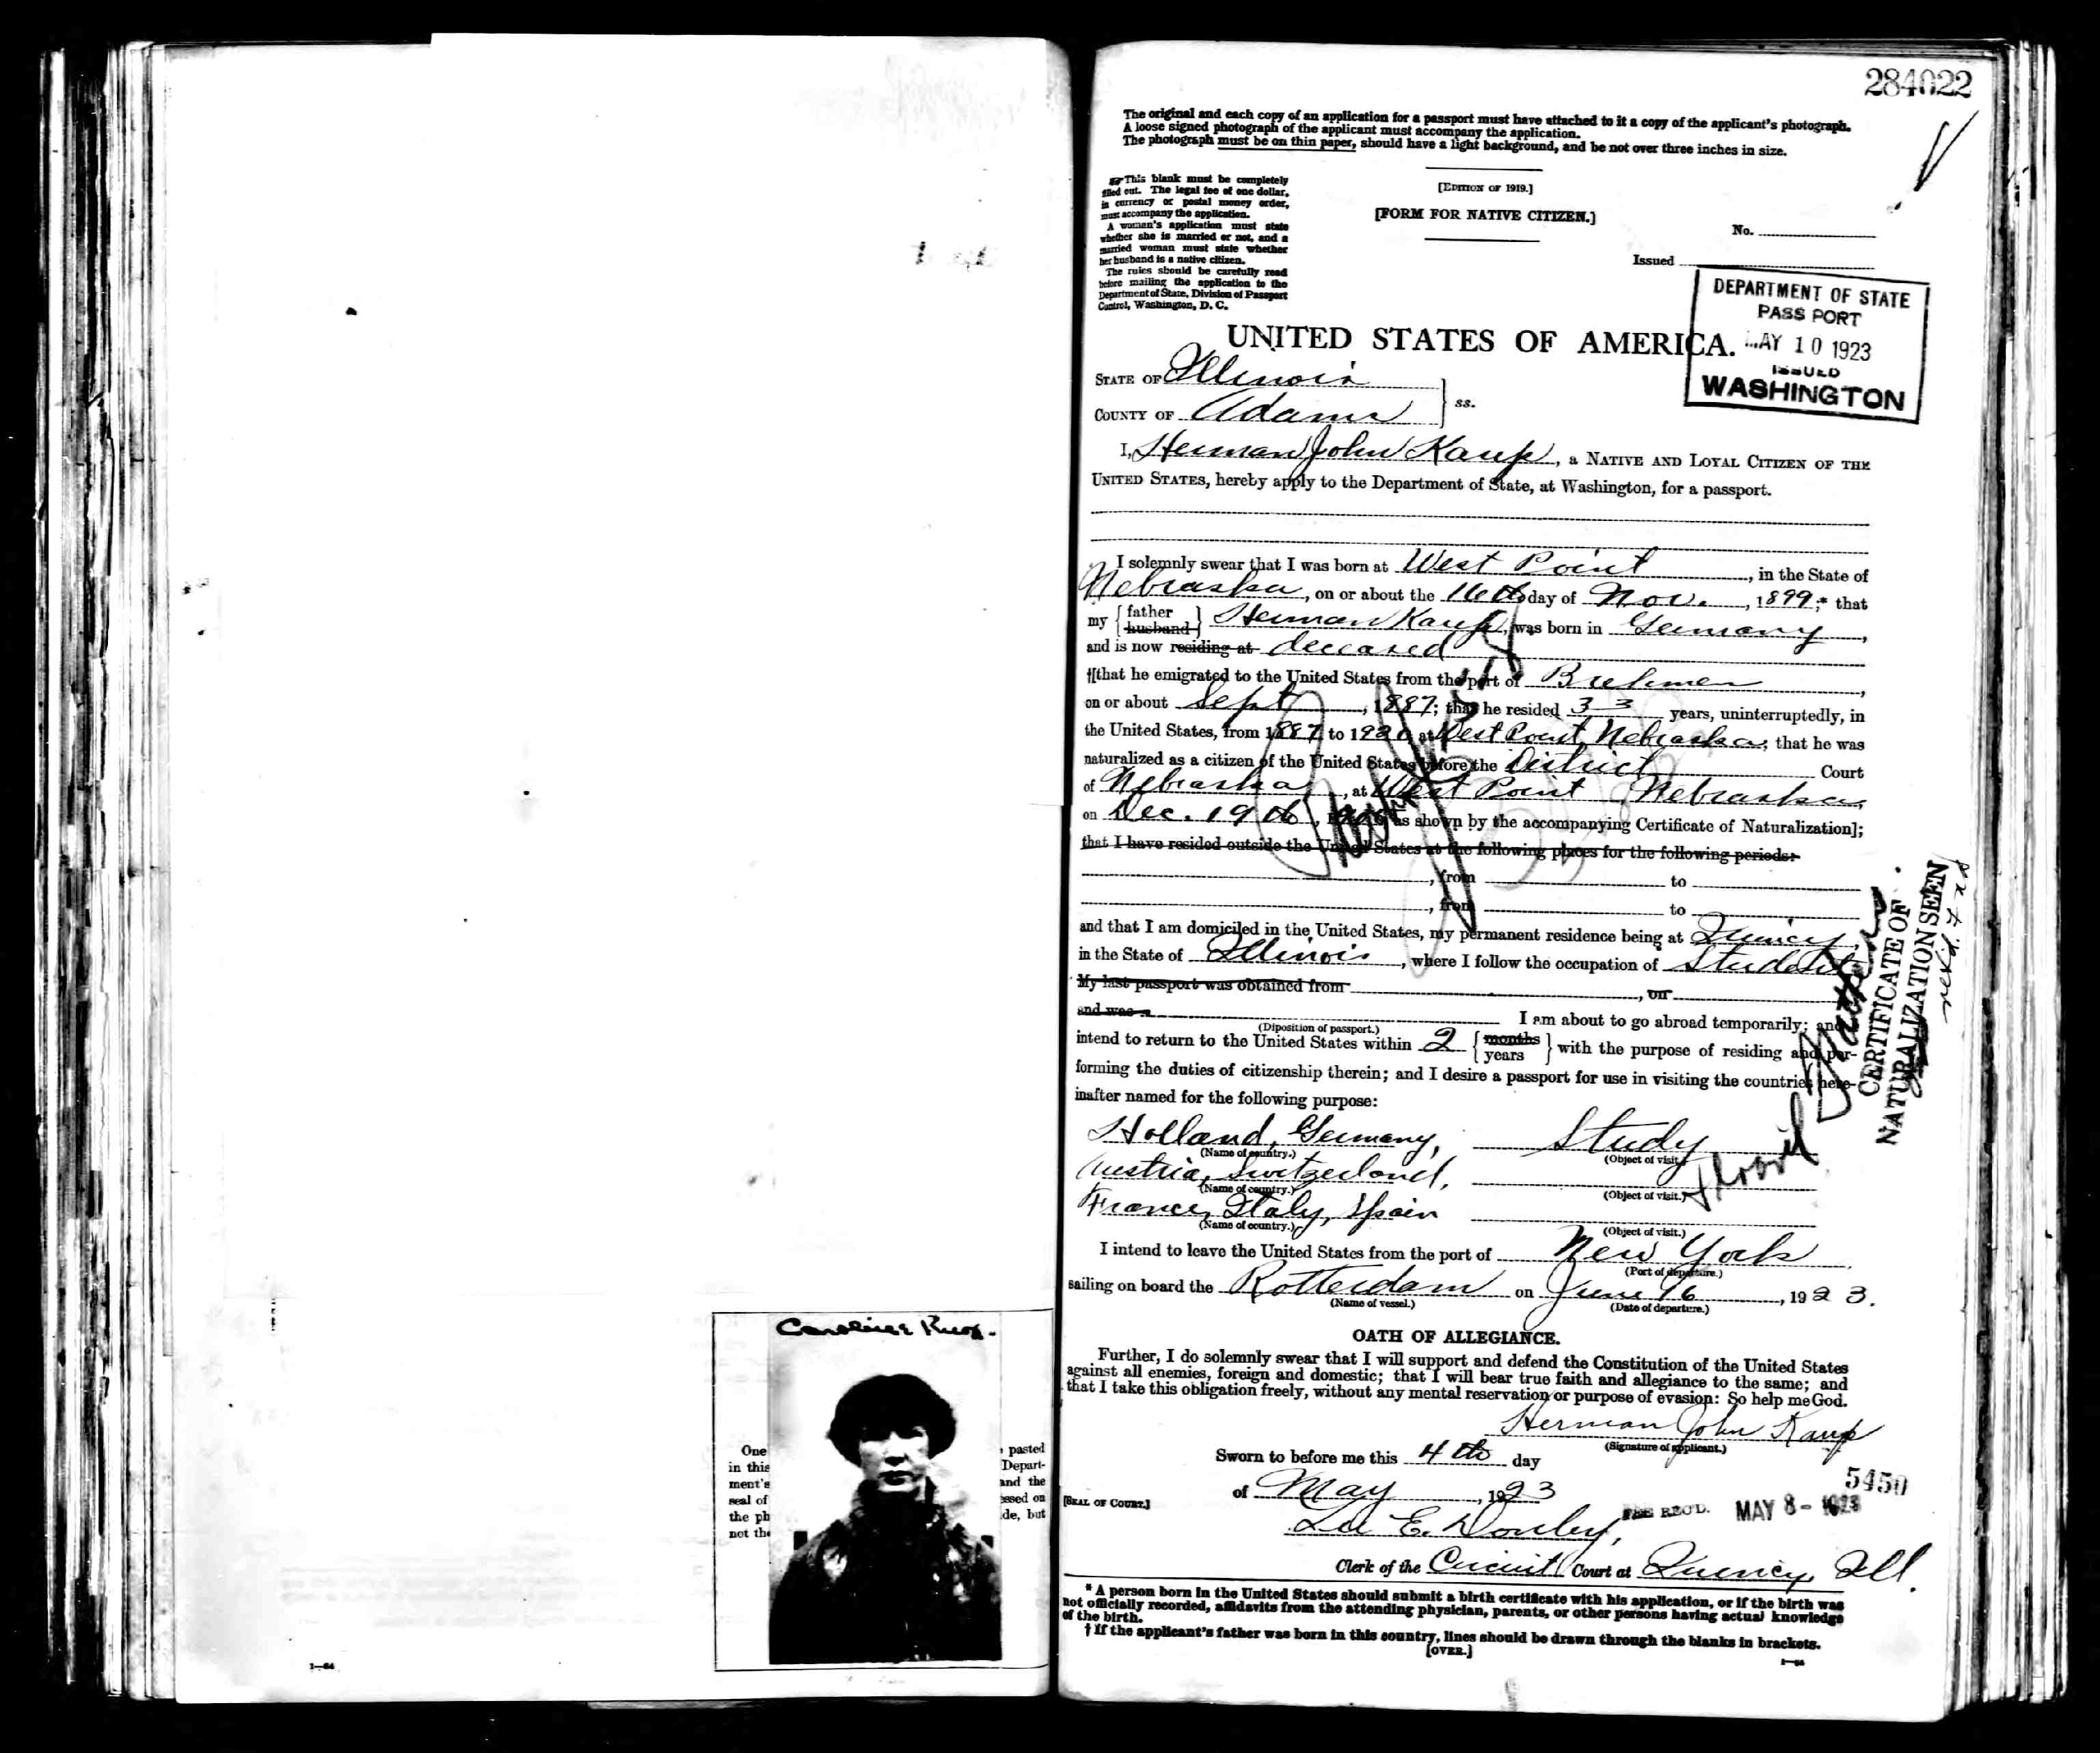 Caroline
One
in this
ment's
seal of
the ph
not the
pasted
Depart-
and the
essed on
de, but
1—64
284022
The original and each copy of an application for a passport must have attached to it a copy of the applicant's photograph.
A loose signed photograph of the applicant must accompany the application.
The photograph must be on thin paper, should have a light background, and be not over three inches in size.
☞This blank must be completely
filled out. The legal fee of one dollar,
in currency or postal money order,
must accompany the application.
A woman's application must state
whether she is married or not, and a
married woman must state whether
her husband is a native citizen.
The rules should be carefully read
before mailing the application to the
Department of State, Division of Passport
Control, Washington, D. C.
[EDITION OF 1919.]
[FORM FOR NATIVE CITIZEN.]
No.
Issued
DEPARTMENT OF STATE
PASSPORT
MAY 10 1923
ISSUED
WASHINGTON
UNITED STATES OF AMERICA.
STATE OF Illinois
COUNTY OF Adams
ss.
I, Herman John Kaup, a NATIVE AND LOYAL CITIZEN OF THE
UNITED STATES, hereby apply to the Department of State, at Washington, for a passport.
I solemnly swear that I was born at West Point, in the State of
Nebraska, on or about the 16th day of Nov., 1899;* that
my {father husband} Herman Kaup, was born in Germany,
and is now residing at deceased
†[that he emigrated to the United States from the port of Brehmen,
on or about Sept, 1887; that he resided 33 years, uninterruptedly, in
the United States, from 1887 to 1920, at West Point, Nebraska; that he was
naturalized as a citizen of the United States before the District Court
of Nebraska, at West Point Nebraska,
on Dec. 19th, as shown by the accompanying Certificate of Naturalization];
that I have resided outside the United States at the following places for the following periods:
, from to
, from to
and that I am domiciled in the United States, my permanent residence being at Quincy,
in the State of Illinois, where I follow the occupation of Student
My last passport was obtained from , on
and was I am about to go abroad temporarily; and
(Diposition of passport.)
intend to return to the United States within 2 {months years} with the purpose of residing and per-
forming the duties of citizenship therein; and I desire a passport for use in visiting the countries here-
inafter named for the following purpose:
Holland, Germany, Study
(Name of country.) (Object of visit.)
Austria, Switzerland,
(Name of country.) (Object of visit.)
France, Italy, Spain
(Name of country.) (Object of visit.)
CERTIFICATE OF
NATURALIZATION SEEN
I intend to leave the United States from the port of New York
(Port of departure.)
sailing on board the Rotterdam on June 16, 1923.
(Name of vessel.) (Date of departure.)
OATH OF ALLEGIANCE.
Further, I do solemnly swear that I will support and defend the Constitution of the United States
against all enemies, foreign and domestic; that I will bear true faith and allegiance to the same; and
that I take this obligation freely, without any mental reservation or purpose of evasion: So help me God.
Herman John Kaup
(Signature of applicant.)
Sworn to before me this 4th day
5450
[SEAL OF COURT.]
of May, 1923
FEE REC'D. MAY 8 - 1923
E.
Clerk of the Circuit Court at Quincy, Ill.
* A person born in the United States should submit a birth certificate with his application, or if the birth was
not officially recorded, affidavits from the attending physician, parents, or other persons having actual knowledge
of the birth.
† If the applicant's father was born in this country, lines should be drawn through the blanks in brackets.
[OVER.]
1—64